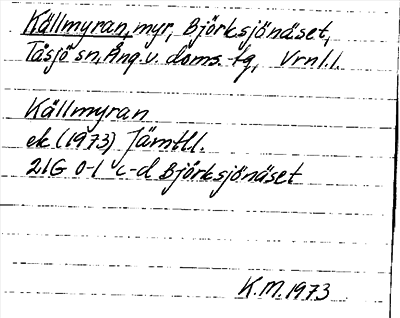 Källmyran, myr, Björksjönäset,
Tåsjö sn, Ång. v. doms. tg, Vrnl.l.
Källmyran
ek (1973) Jämtl.l.
21G 0-1 c-d Björksjönäset
K.M. 1973